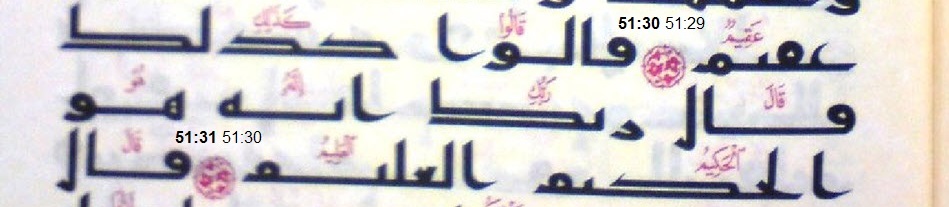 عَقِيمٌ قَالُوا كَذَٰلِكِ
51:30 51:29
عقىم قالوا كدلك
قَالَ رَبُّكِ إِنَّهُ هُوَ
قال ربك انه هو
51:31 51:30
الْحَكِيمُ الْعَلِيمُ قَالَ
الحكيم العليم قال